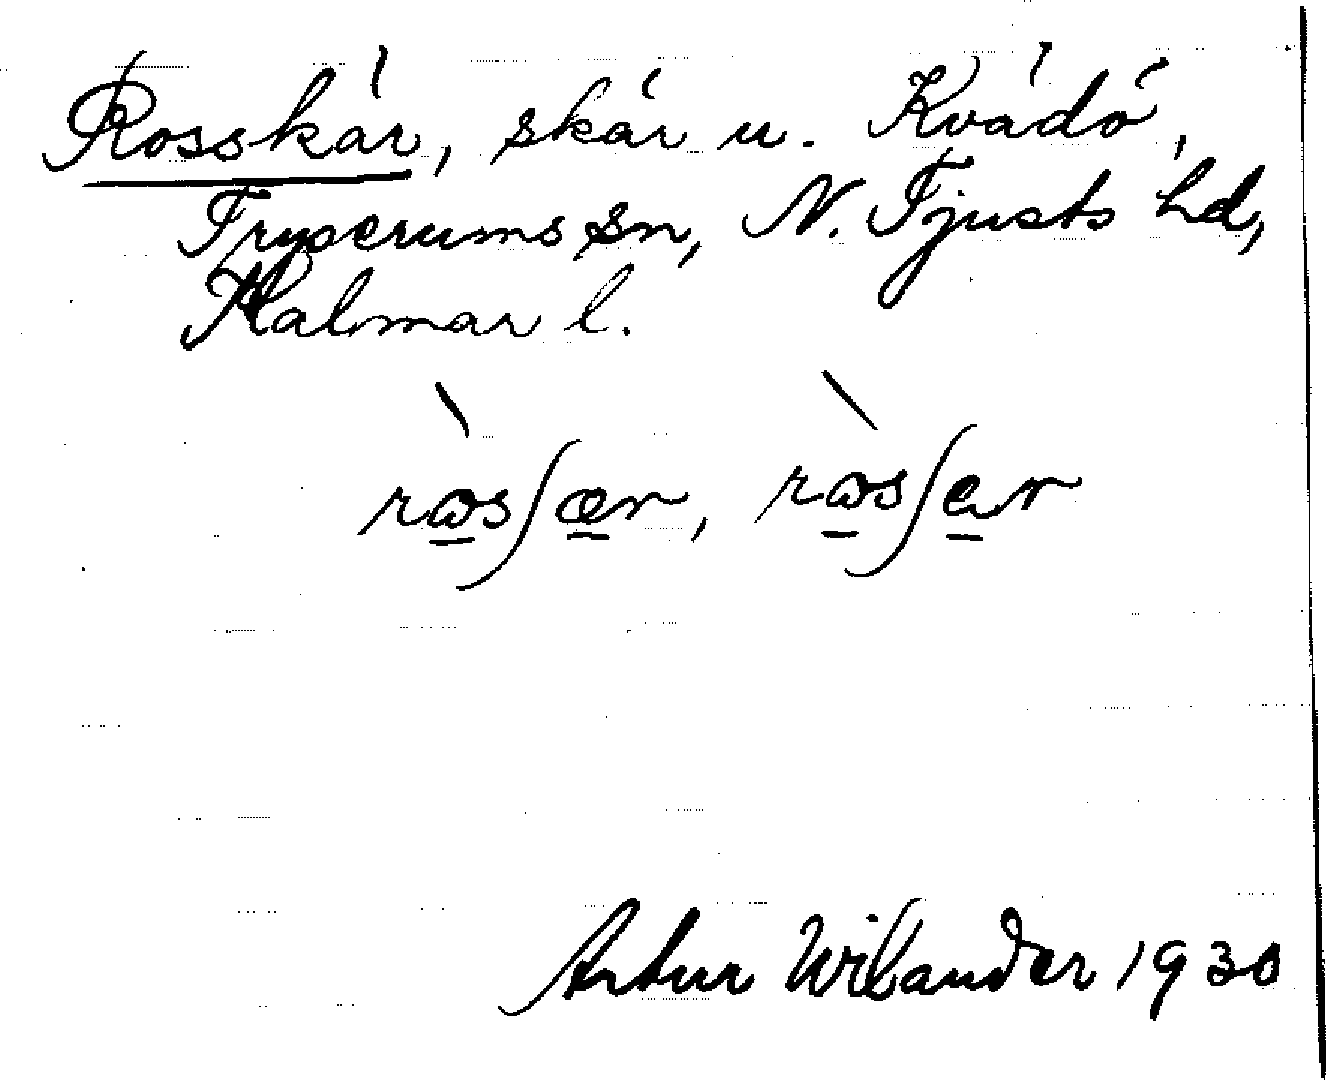 Rosskär, skär u. Kvädö,
Tryserums sn, N. Tjusts hd,
Kalmar l.
Artur Wilander 1930